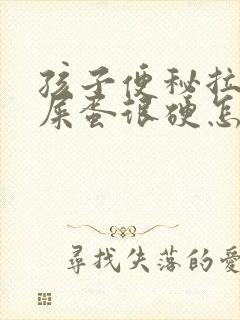 孩子便秘拉
屎蛋很硬怎
尋找失落的愛